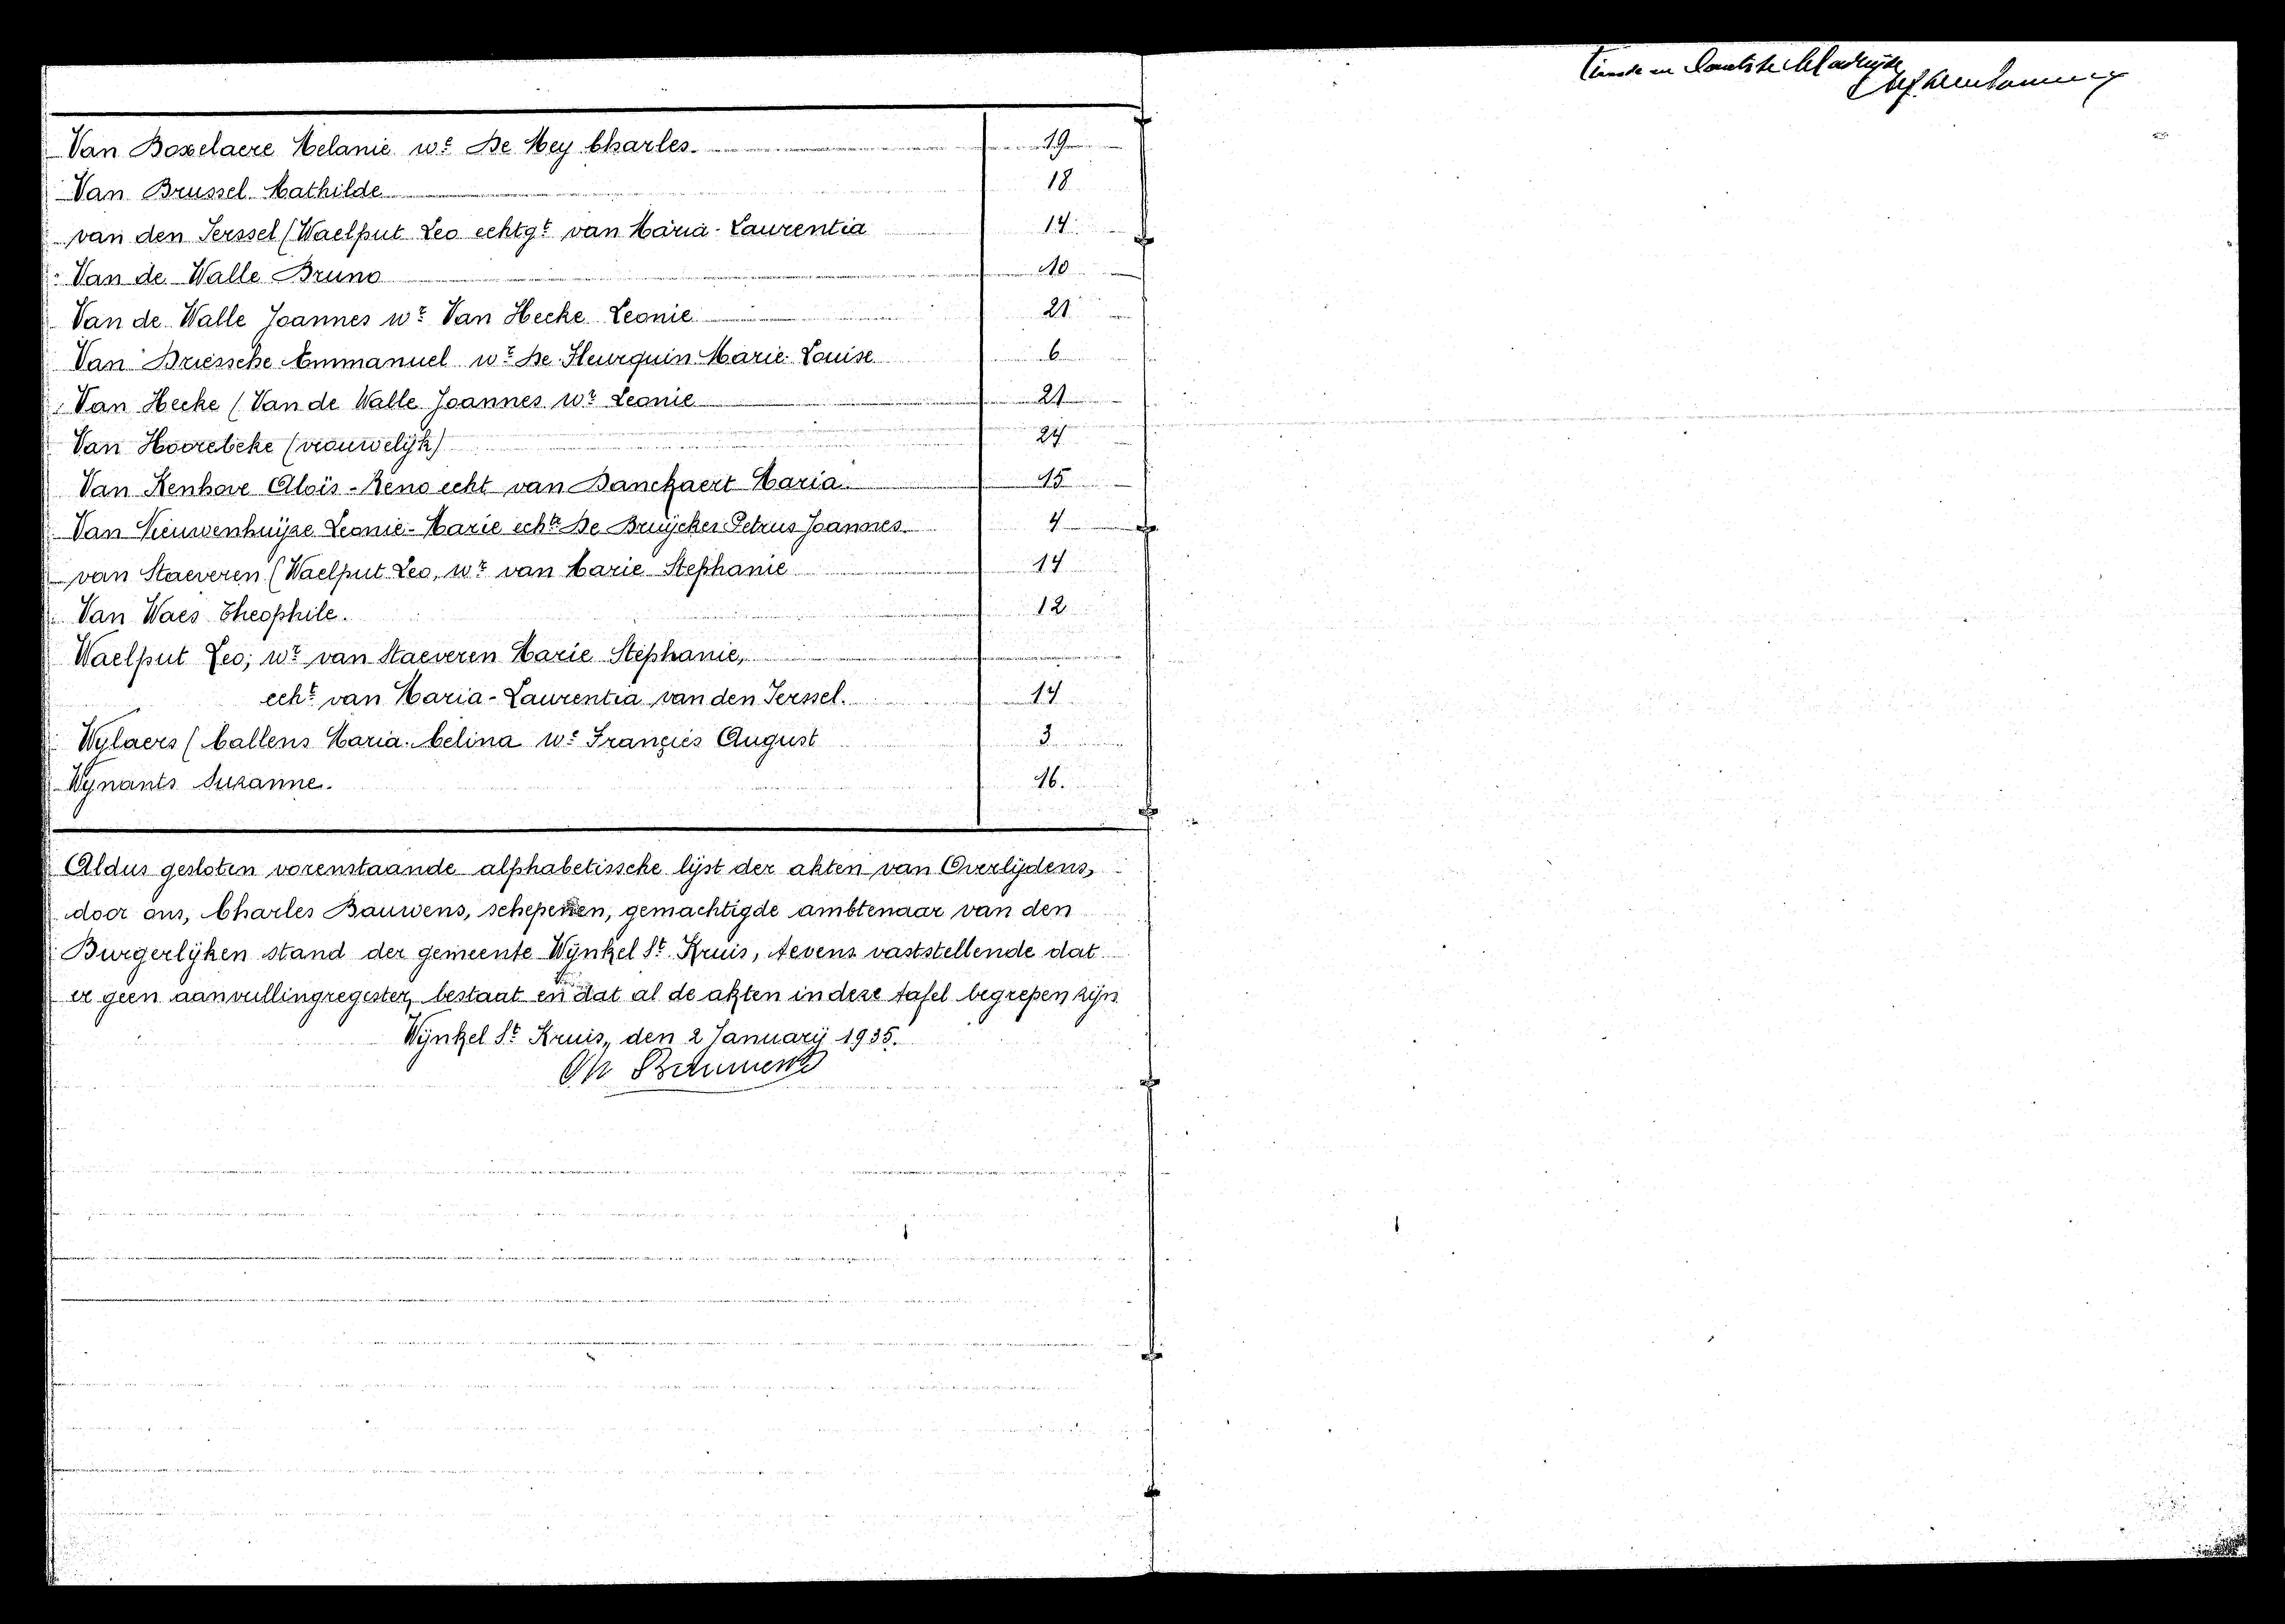 Van Boxelaere Melanie we De Mey Charles. 19
Van Brussel Mathilde 18
van den Jerssel (Waelput Leo echtgt van Maria-Laurentia 14
Van de Walle Bruno 10
Van de Walle Joannes wr Van Hecke Leonie 21
Van Driessche Emmanuel wr De Fleurquin Marie-Louise 6
Van Hecke (Van de Walle Joannes wr Leonie 21
Van Hoorebeke (vrouwelijk) 24
Van Kenhove Aloïs-Réno echt van Banckaert Maria. 15
Van Nieuwenhuijze Leonie-Marie echte De Bruijcker Petrus Joannes. 4
van Staeveren (Waelput Leo, wr van Marie Stephanie 14
Van Waes Theophile. 12
Waelput Leo; wr van Staeveren Marie Stéphanie,
echt van Maria-Laurentia van den Jerssel. 14
Wylaers (Callens Maria-Celina we François August 3
Wynants Suzanne. 16.
Aldus gesloten vorenstaande alphabetissche lijst der akten van Overlijdens,
door ons, Charles Bauwens, schepenen, gemachtigde ambtenaar van den
Burgerlijken stand der gemeente Wijnkel St Kruis, tevens vaststellende dat
er geen aanvullingregister, bestaat en dat al de akten in deze tafel begrepen zijn
Wijnkel St Kruis, den 2 Januarij 1935.
Ch Bauwens